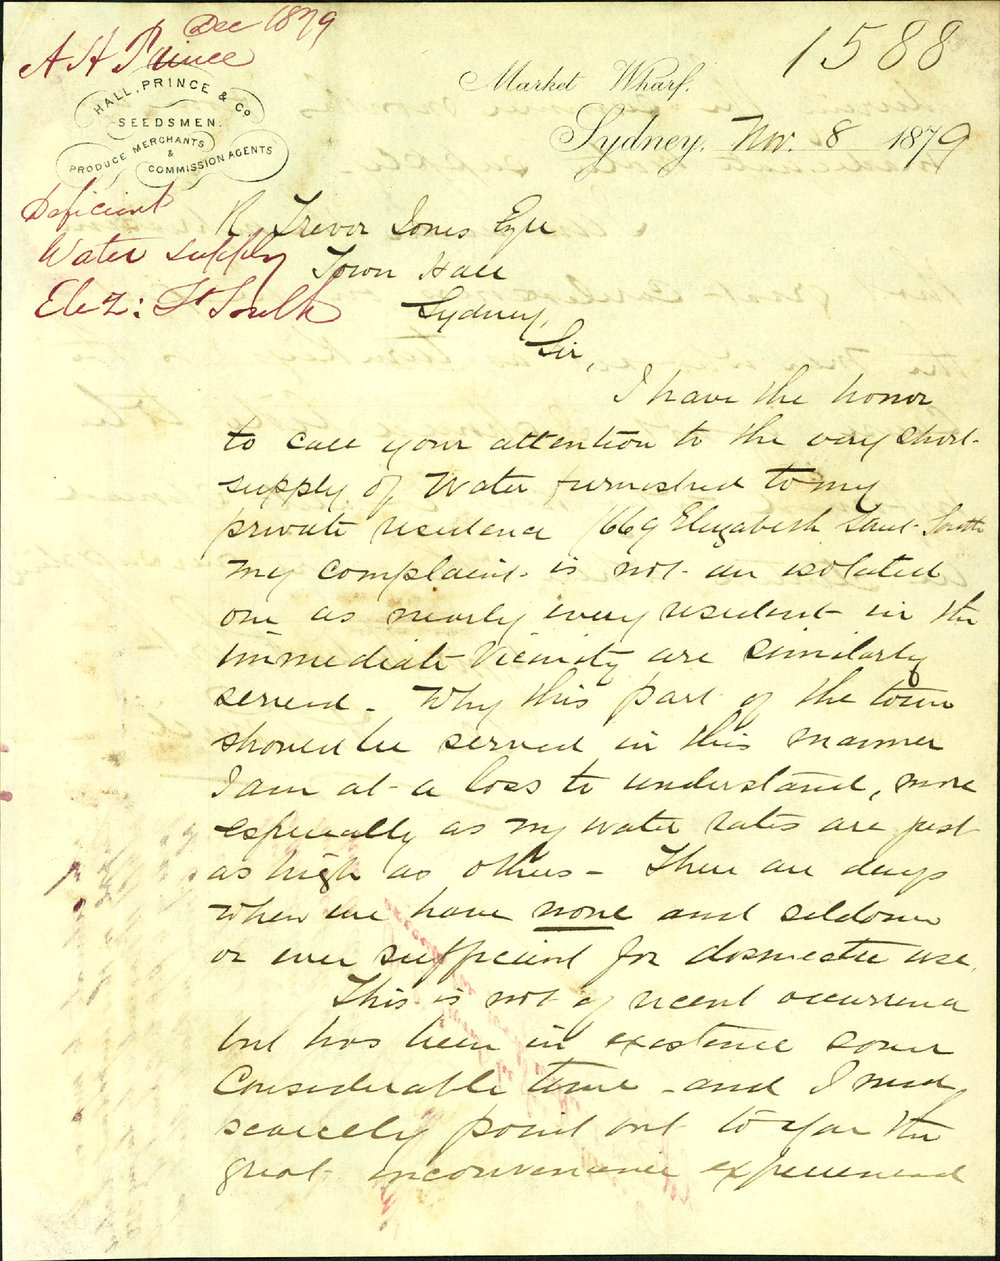 Dec 1879
A H Prince
1588
HALL, PRINCE & Co
SEEDSMEN.
PRODUCE MERCHANTS
&
COMMISSION AGENTS
Market Wharf.
Sydney, Nov. 8 1879
Deficient
Water supply
Eliz: St South
R. Trevor Jones Esqre
Town Hall
Sydney,
Sir,
I have the honor
to call your attention to the very short
supply of Water furnished to my
private residence 669 Elizabeth Street South
my complaint is not an isolated
one as nearly every resident in the
immediate Vicinity are similarly
served - Why this part of the town
should be served in this manner
I am at a loss to understand, more
especially as my water rates are just
as high as others - There are days
when we have none and seldom
or ever sufficient for domestic use.
This is not of recent occurrence
but has been in existence some
Considerable time - and I need
scarcely point out to you the
great inconvenience experienced